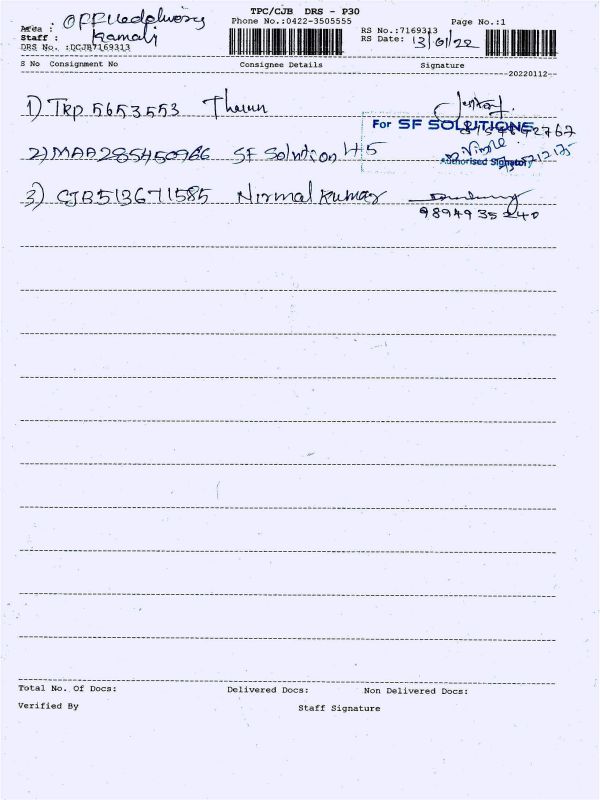 TPC/CJB DRS - P30
Area :
Phone No.:0422-3505555 Page No.:1
Staff : Kamali
RS No.:7169313
RS Date: 13/01/22
DRS No. :DCJB7169313
S No Consignment No Consignee Details Signature
20220112
1) TRP 5653553 Tharun
For SF SOLUTIONS
2767
2) MAA285450966 SF Solution 45
Authorised Signatory
3) CJB513671585 Nirmal Kumar
9894935240
Total No. Of Docs: Delivered Docs: Non Delivered Docs:
Verified By Staff Signature